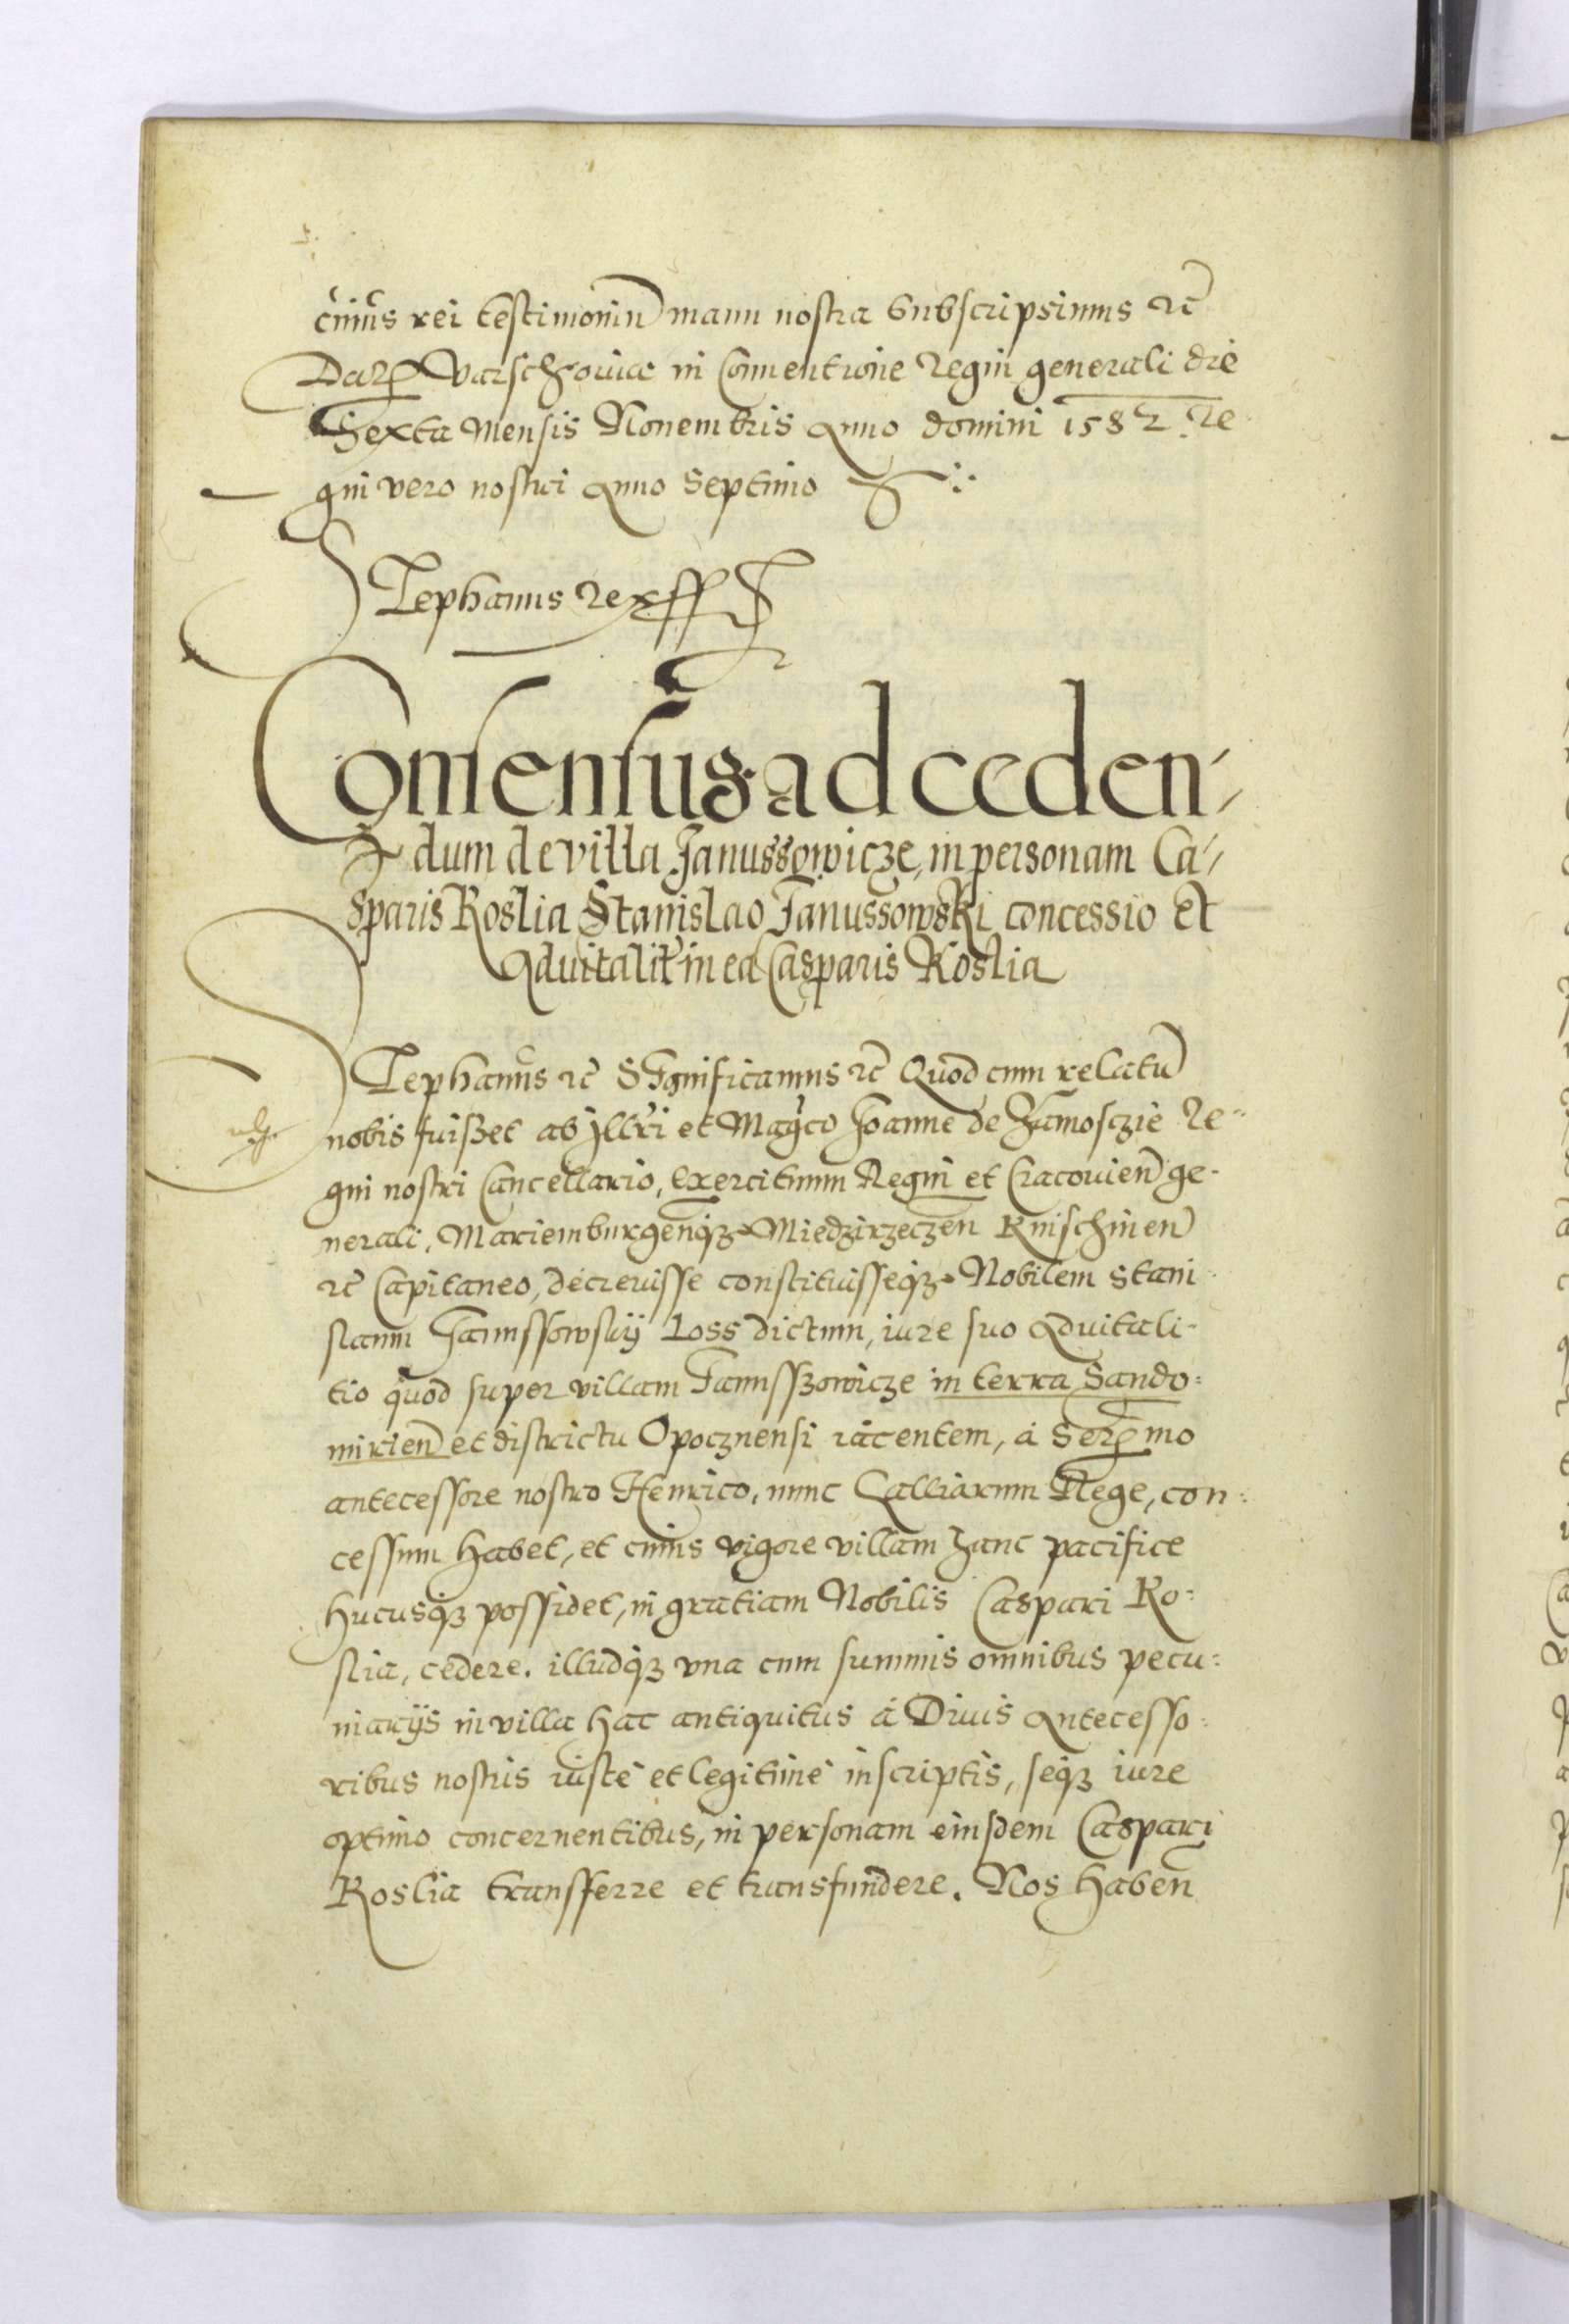 cuius rei testimoniũ manu nostra subscripsimus ꝛc̃
Datꝭ Varschoviae in Conventione Regni generali die
Sexta Mensis Novembris Anno domini 1582 Re
gni vero nostri Anno Septimo
Stephanus Rex ss
Consensus ad ceden-
dum de villa Janussowicze, in personam Ca-
sparis Roslia Stanislao Janussowski concessio et
Advitalit in ea Casparis Roslia
Stephanus ꝛc̃ Significamus ꝛc̃ Quod cum relatũ
nobis fuisset ab Jllri et Magco Joanne de Zamosczie Re-
gni nostri Cancellario, exercituum Regni et Cracovieñ ge-
nerali, Mariemburgenqꝫ Miedzirzeczen Knischineñ
ꝛc̃ Capitaneo, decrevisse constituisseqꝫ Nobilem Stani
slaum Janussowskij Loss dictum, iure suo Advitali-
tio quod super villam Janusszowicze in terra Sando:
mirień et districtu Opocznensi iacentem, á Serꝭmo
antecessore nostro Henrico, nunc Galliarum Rege, con:
cessum habet, et cuius vigore villam hanc pacifice
hucusqꝫ possidet, in gratiam Nobilis Caspari Ro:
slia, cedere. illudqꝫ vna cum summis omnibus pecu:
niarijs in villa hac antiquitus á Divis Antecesso:
ribus nostris iuste et legitime inscriptis, seqꝫ iure
optimo concernentibus, in personam eiusdem Caspari
Roslia transferre et transfundere. Nos haben̄